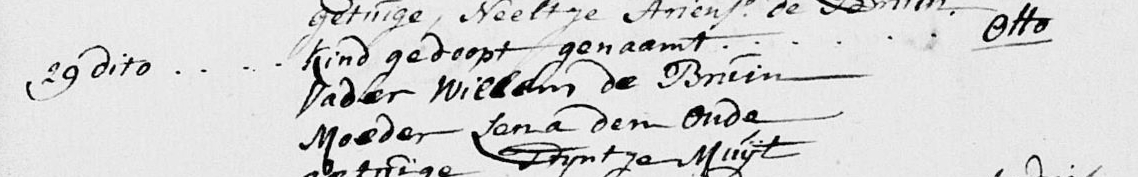 getuige, Neeltje Ariens. de Bruin.
29 dito . . . . kind gedoopt genaamt . . . . . . Otto
Vader Willem de Bruin
Moeder Lena den Oude
getuige Stijntje Muijt